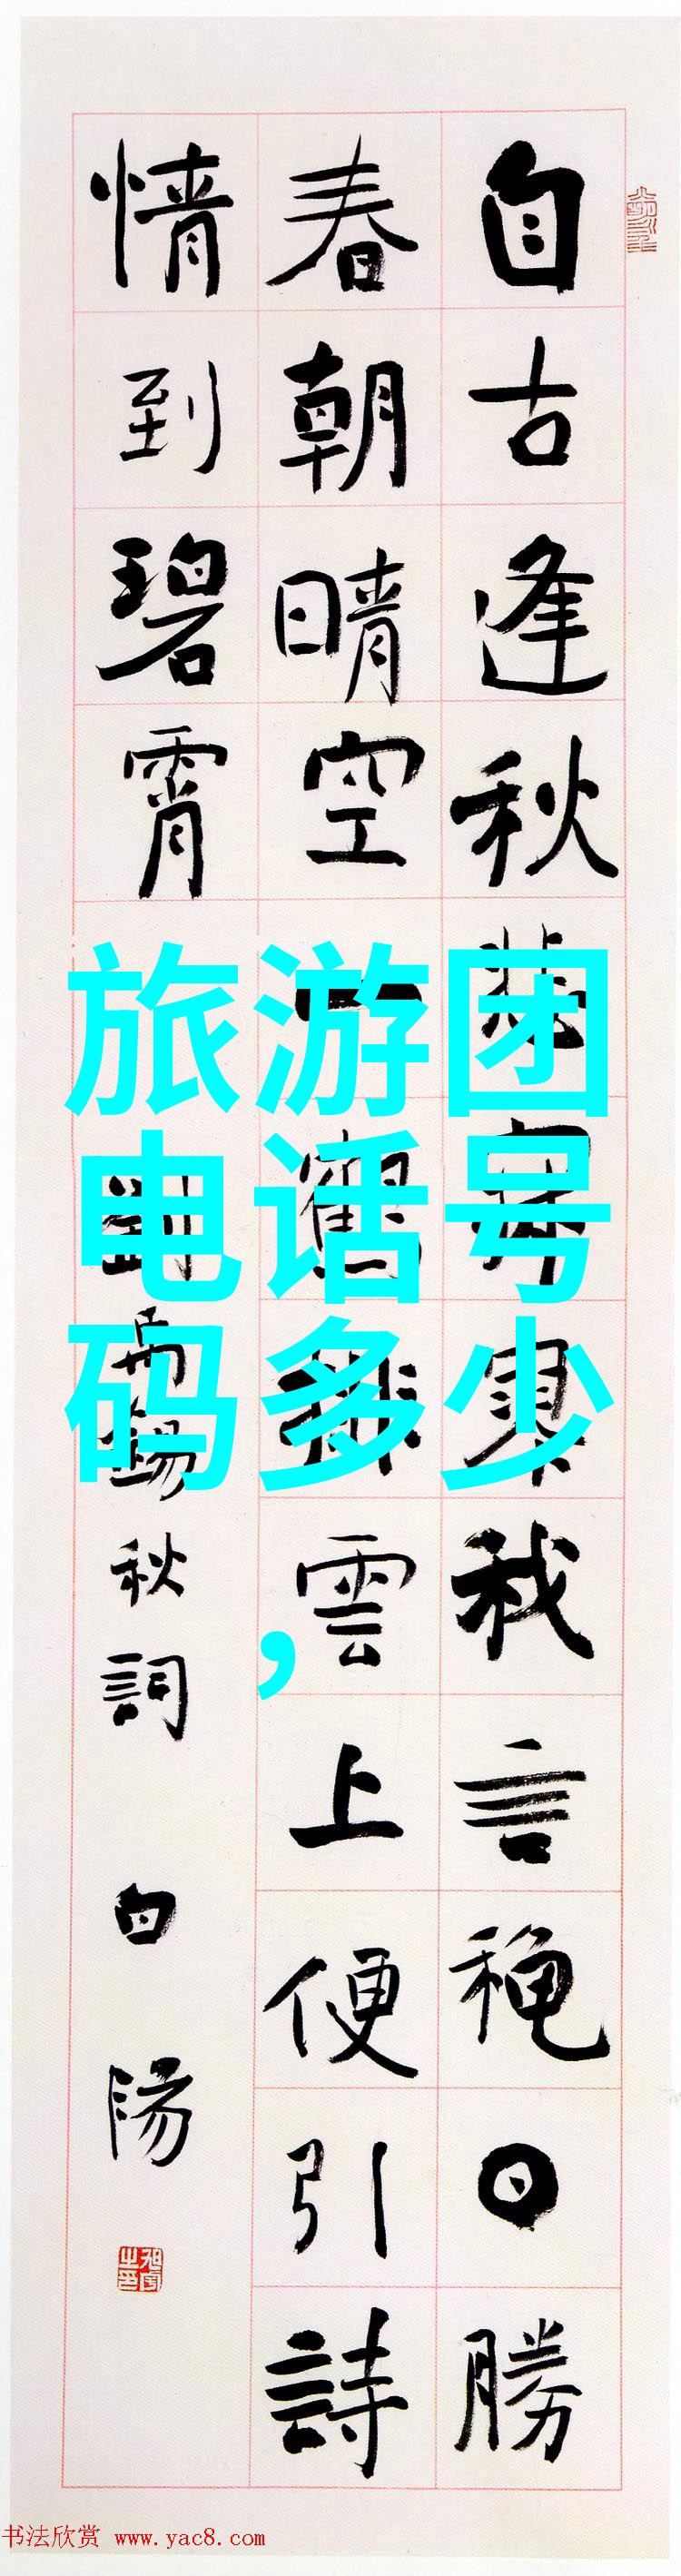 自古逢秋悲寂寥我言穐日勝
春朝晴空一鶴排雲上便引詩
情到碧霄
劉禹錫秋詞 白陽
旅游团
电话号
码多少
，
书法欣赏 www.yac8.com